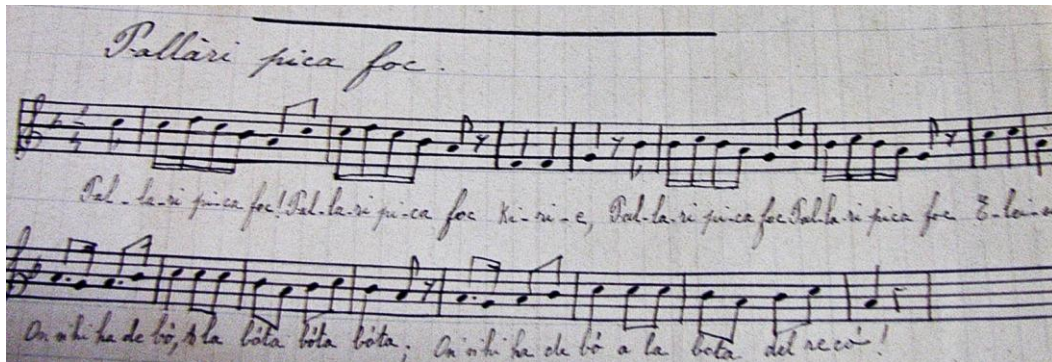 Pallàri pica foc.
Pal-la-ri pi-ca foc! Pal-la-ri pi-ca foc Ki-ri-e, Pal-la-ri pi-ca foc Pal-la-ri pica foc E-lei-s
On n'hi ha de bó, A la bóta bóta bóta; On n'hi ha de bó a la bóta del recó!